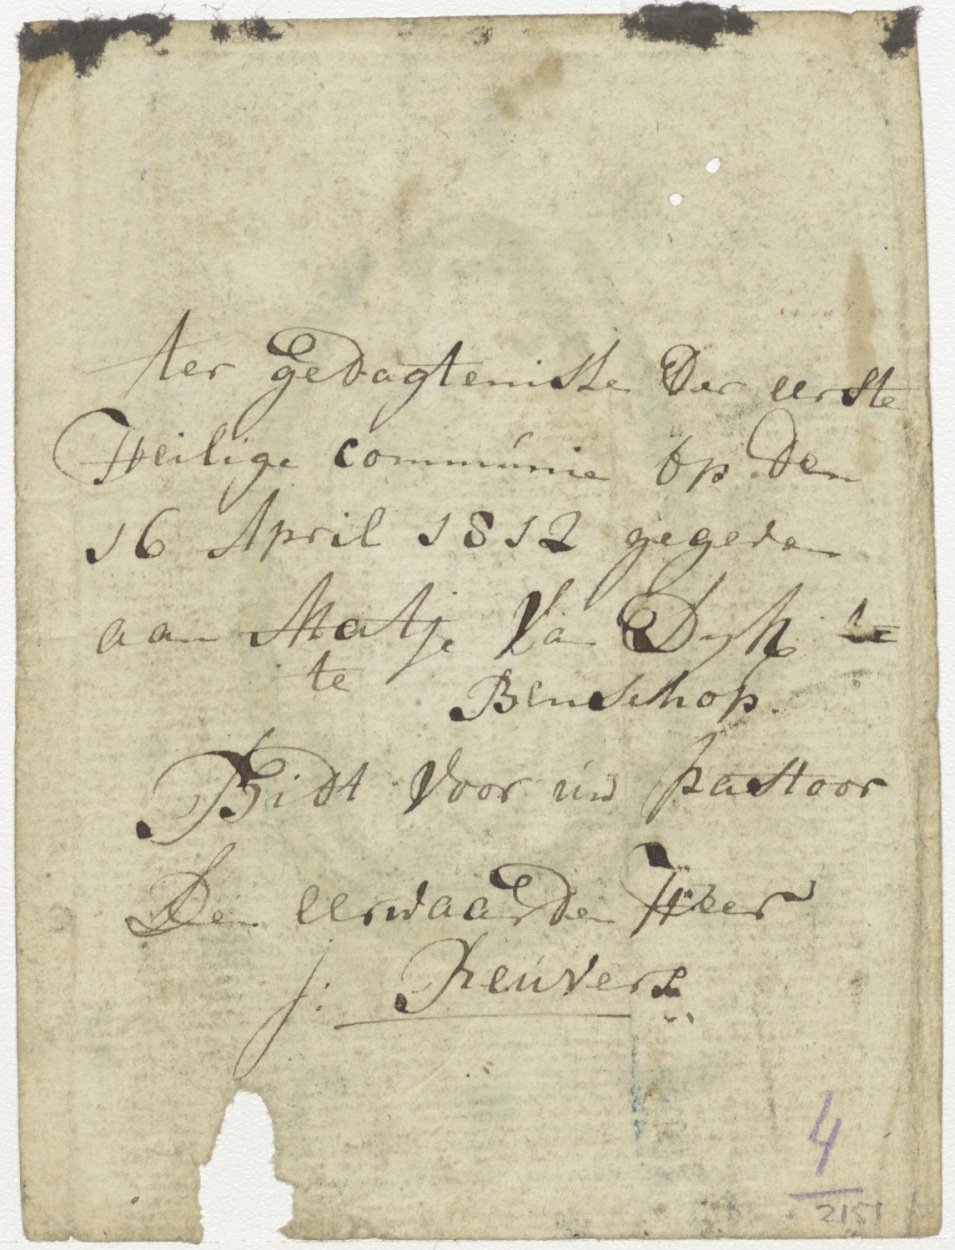 ter gedagtenisse Der eerste
Heilige communie op den
16 April 1812 gegeven
aan Matje Van Dyk te
te Benschop.
Bidt Voor uw pastoor
Den eerwaarden Heer
J: Reuvers
4
2151